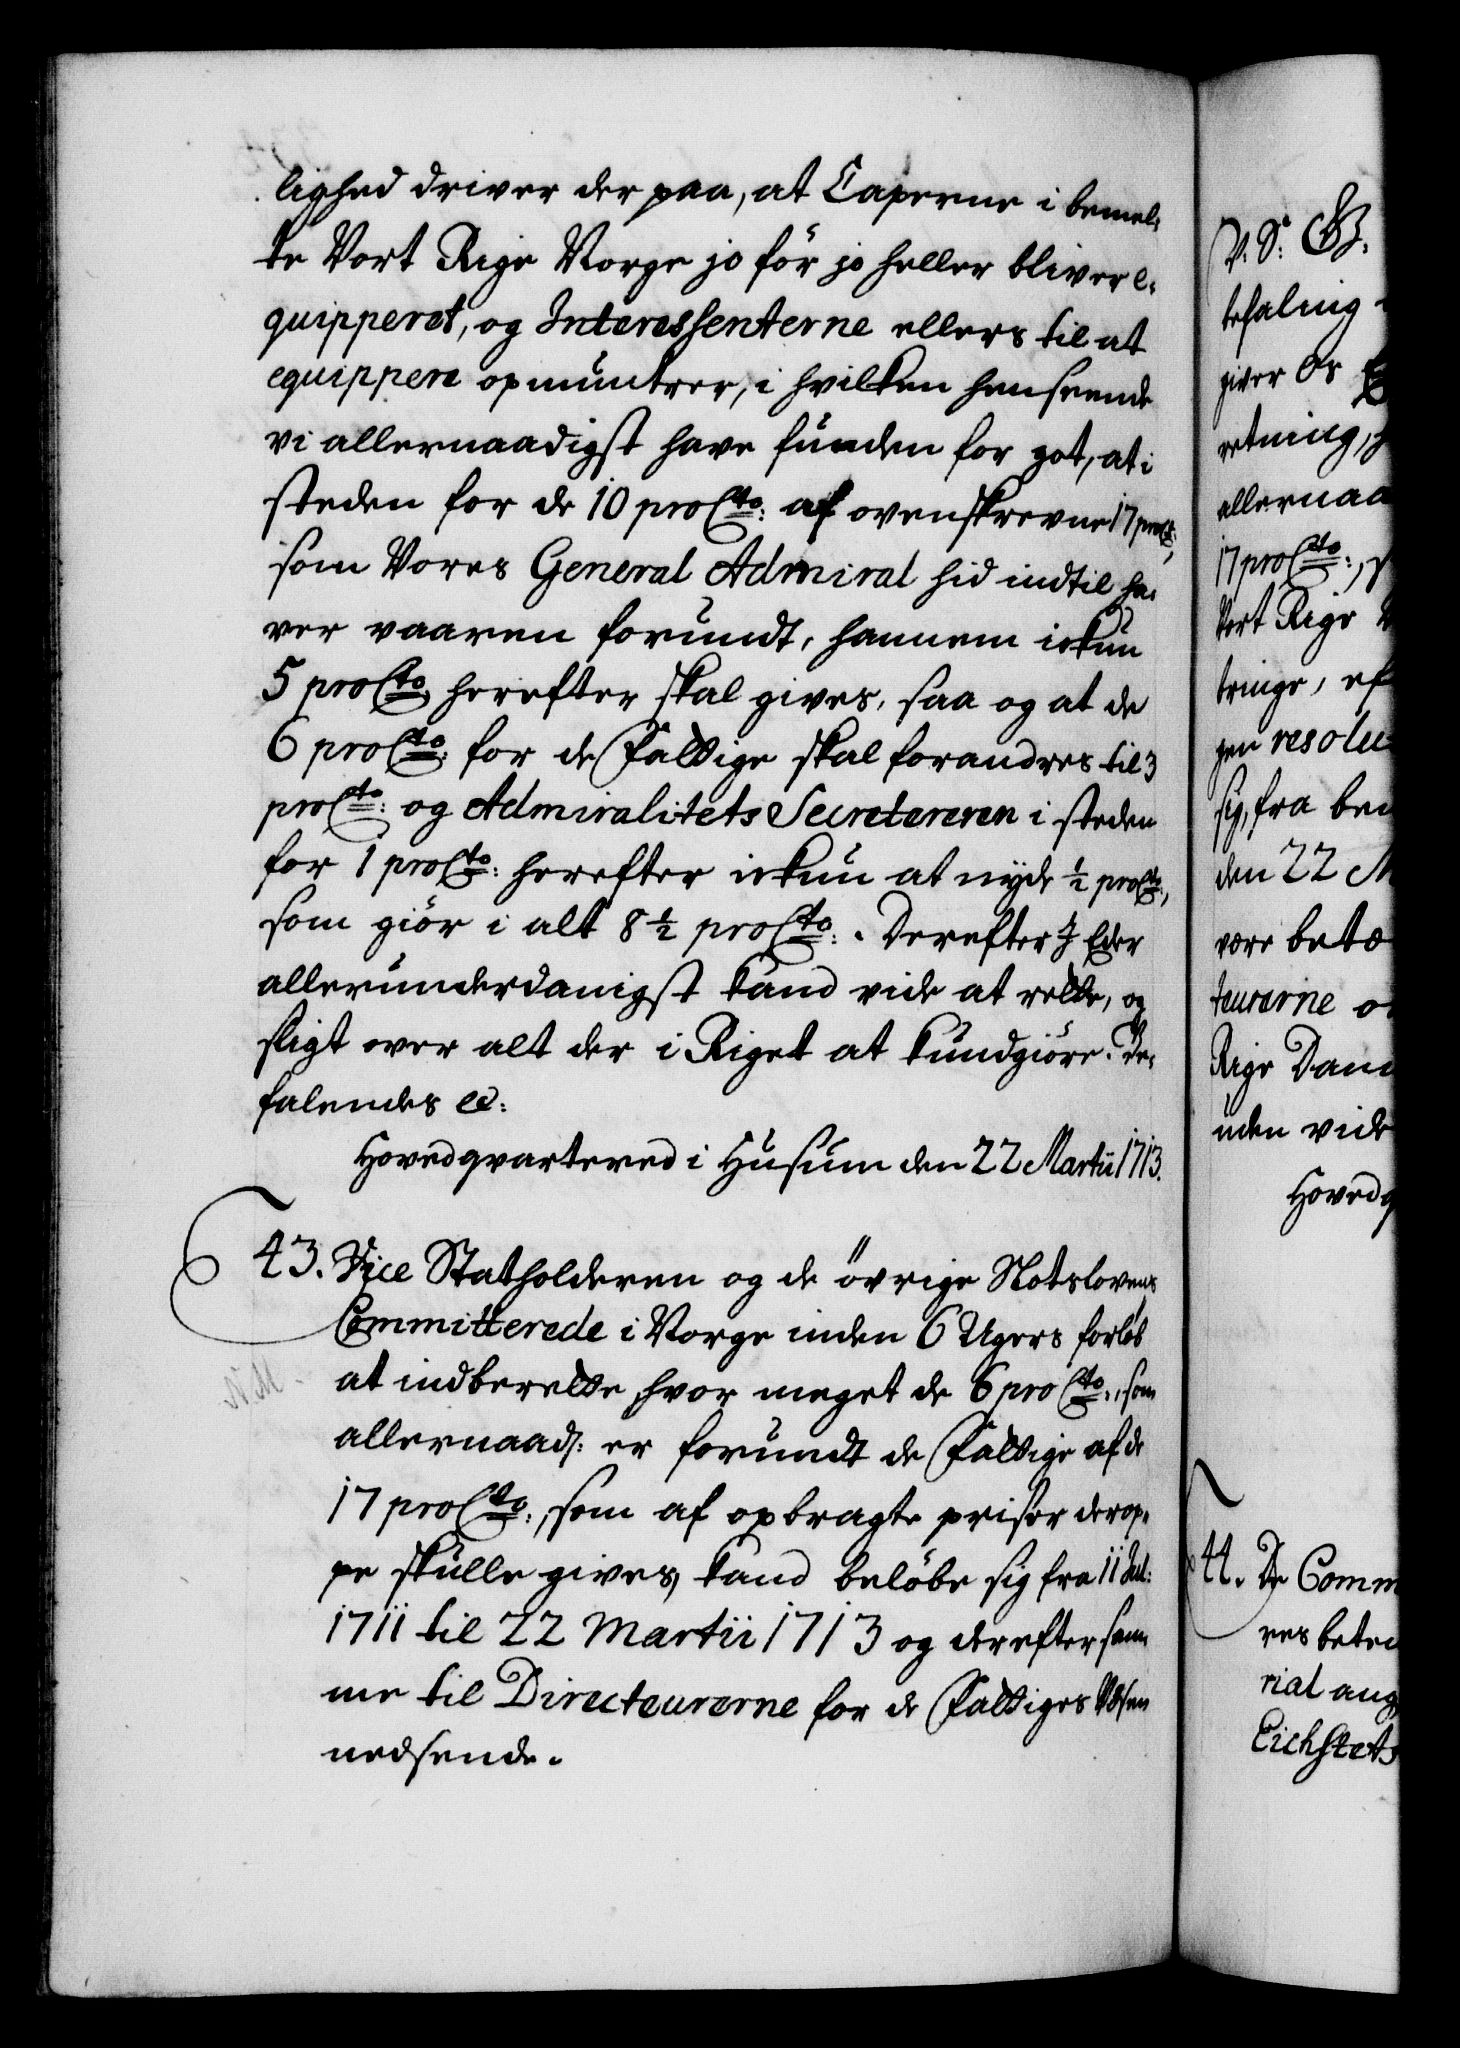 lighed driver der paa, at Caperne i bemel-
te Vort Rige Norge jo för jo heller bliver e-
quipperet, og Interessenterne ellers til at
equippere opmuntrer, i hvilken henseende
vi allernaadigst have funden for got, at i
steden for de 10 proCto: af ovenskrevne 17 proCto:,
som Vores General Admiral hid indtil ha-
ver vaaren forundt, hannem ickun
5 proCto herefter skal gives, saa og at de
6 proCto: for de Fattige skal forandres til 3
proCto: og Admiralitets Secretereren i steden
for 1 proCto: herefter ickun at nyde ½ proCto:,
som giör i alt 8½ proCto:. Derefter I Eder
allerunderdanigst kand vide at rette, og
sligt over alt der i Riget at kundgiöre. Be-
falendes ec:
Hovedqvartered i Husum den 22 Martii 1713.
43. Vice Statholderen og de övrige Slotslovens
Committerede i Norge inden 6 Ugers forlöb
at indberette, hvor meget de 6 proCto:, som
allernaadst: er forundt de Fattige af de
17 proCto:, som af opbragte priser derop-
pe skulle gives, kand belöbe sig fra 11 Jul:
1711 til 22 Martii 1713 og derefter sam-
me til Directeurerne for de Fattiges Væsen
nedsende.
V. S: G.
befaling
giver Os
retning,
allernaa
17 proCto:,
Vort Rige
bringe, ef
gen resolu-
sig, fra be
den 22 M
være betæ
teurerne o
Rige Dan
uden vide
Hovedq
44. De Comm
res beten
rial ang
Eichstets